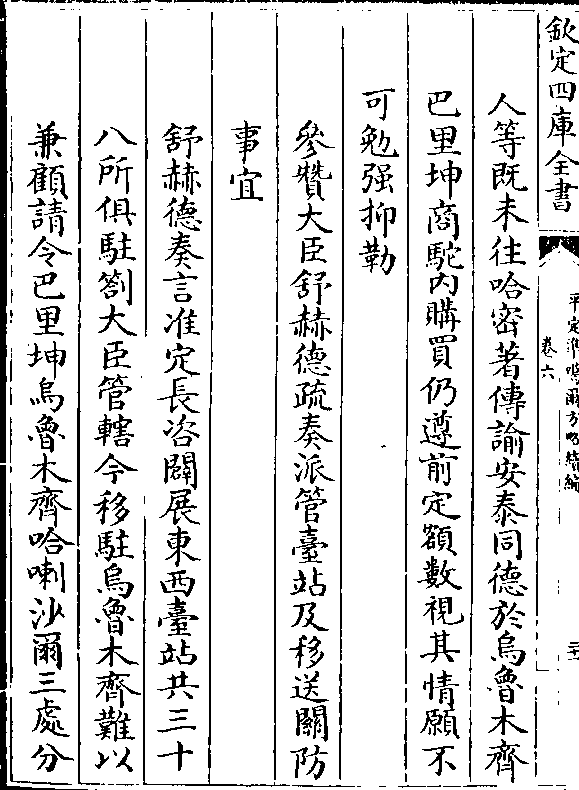 欽定四庫全書
平定準噶爾方略續編
卷六
人等既未往哈密著傳諭安泰同德於烏魯木齊
巴里坤商駝內購買仍遵前定額數視其情願不
可勉强抑勒
參贊大臣舒赫德疏奏派管臺站及移送關防
事宜
舒赫德奏言准定長咨闢展東西臺站共三十
八所俱駐劄大臣管轄今移駐烏魯木齊難以
兼顧請令巴里坤烏魯木齊哈喇沙爾三處分